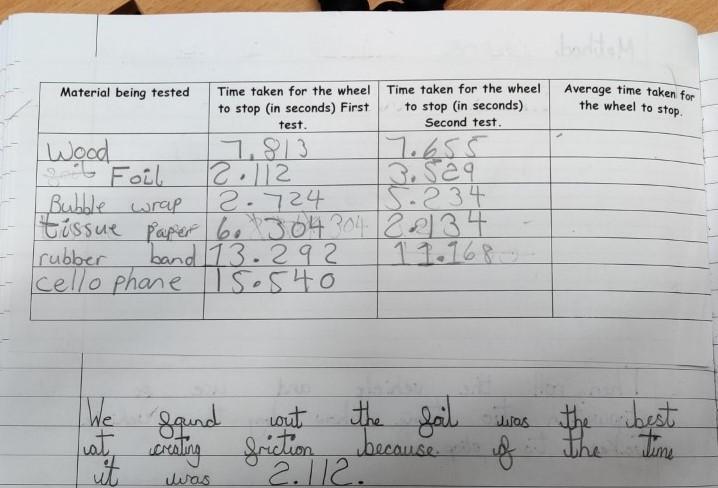 Material being tested Time taken for the wheel to stop (in seconds) First test. Time taken for the wheel to stop (in seconds) Second test. Average time taken for the wheel to stop.
Wood 7.813 7.655
Foil 2.112 3.529
Bubble wrap 2.724 5.234
tissue paper 6.304 304 2.134
rubber band 13.292 11.168
cellophane 15.540
We found out the foil was the best
at creating friction because of the time
it was 2.112.